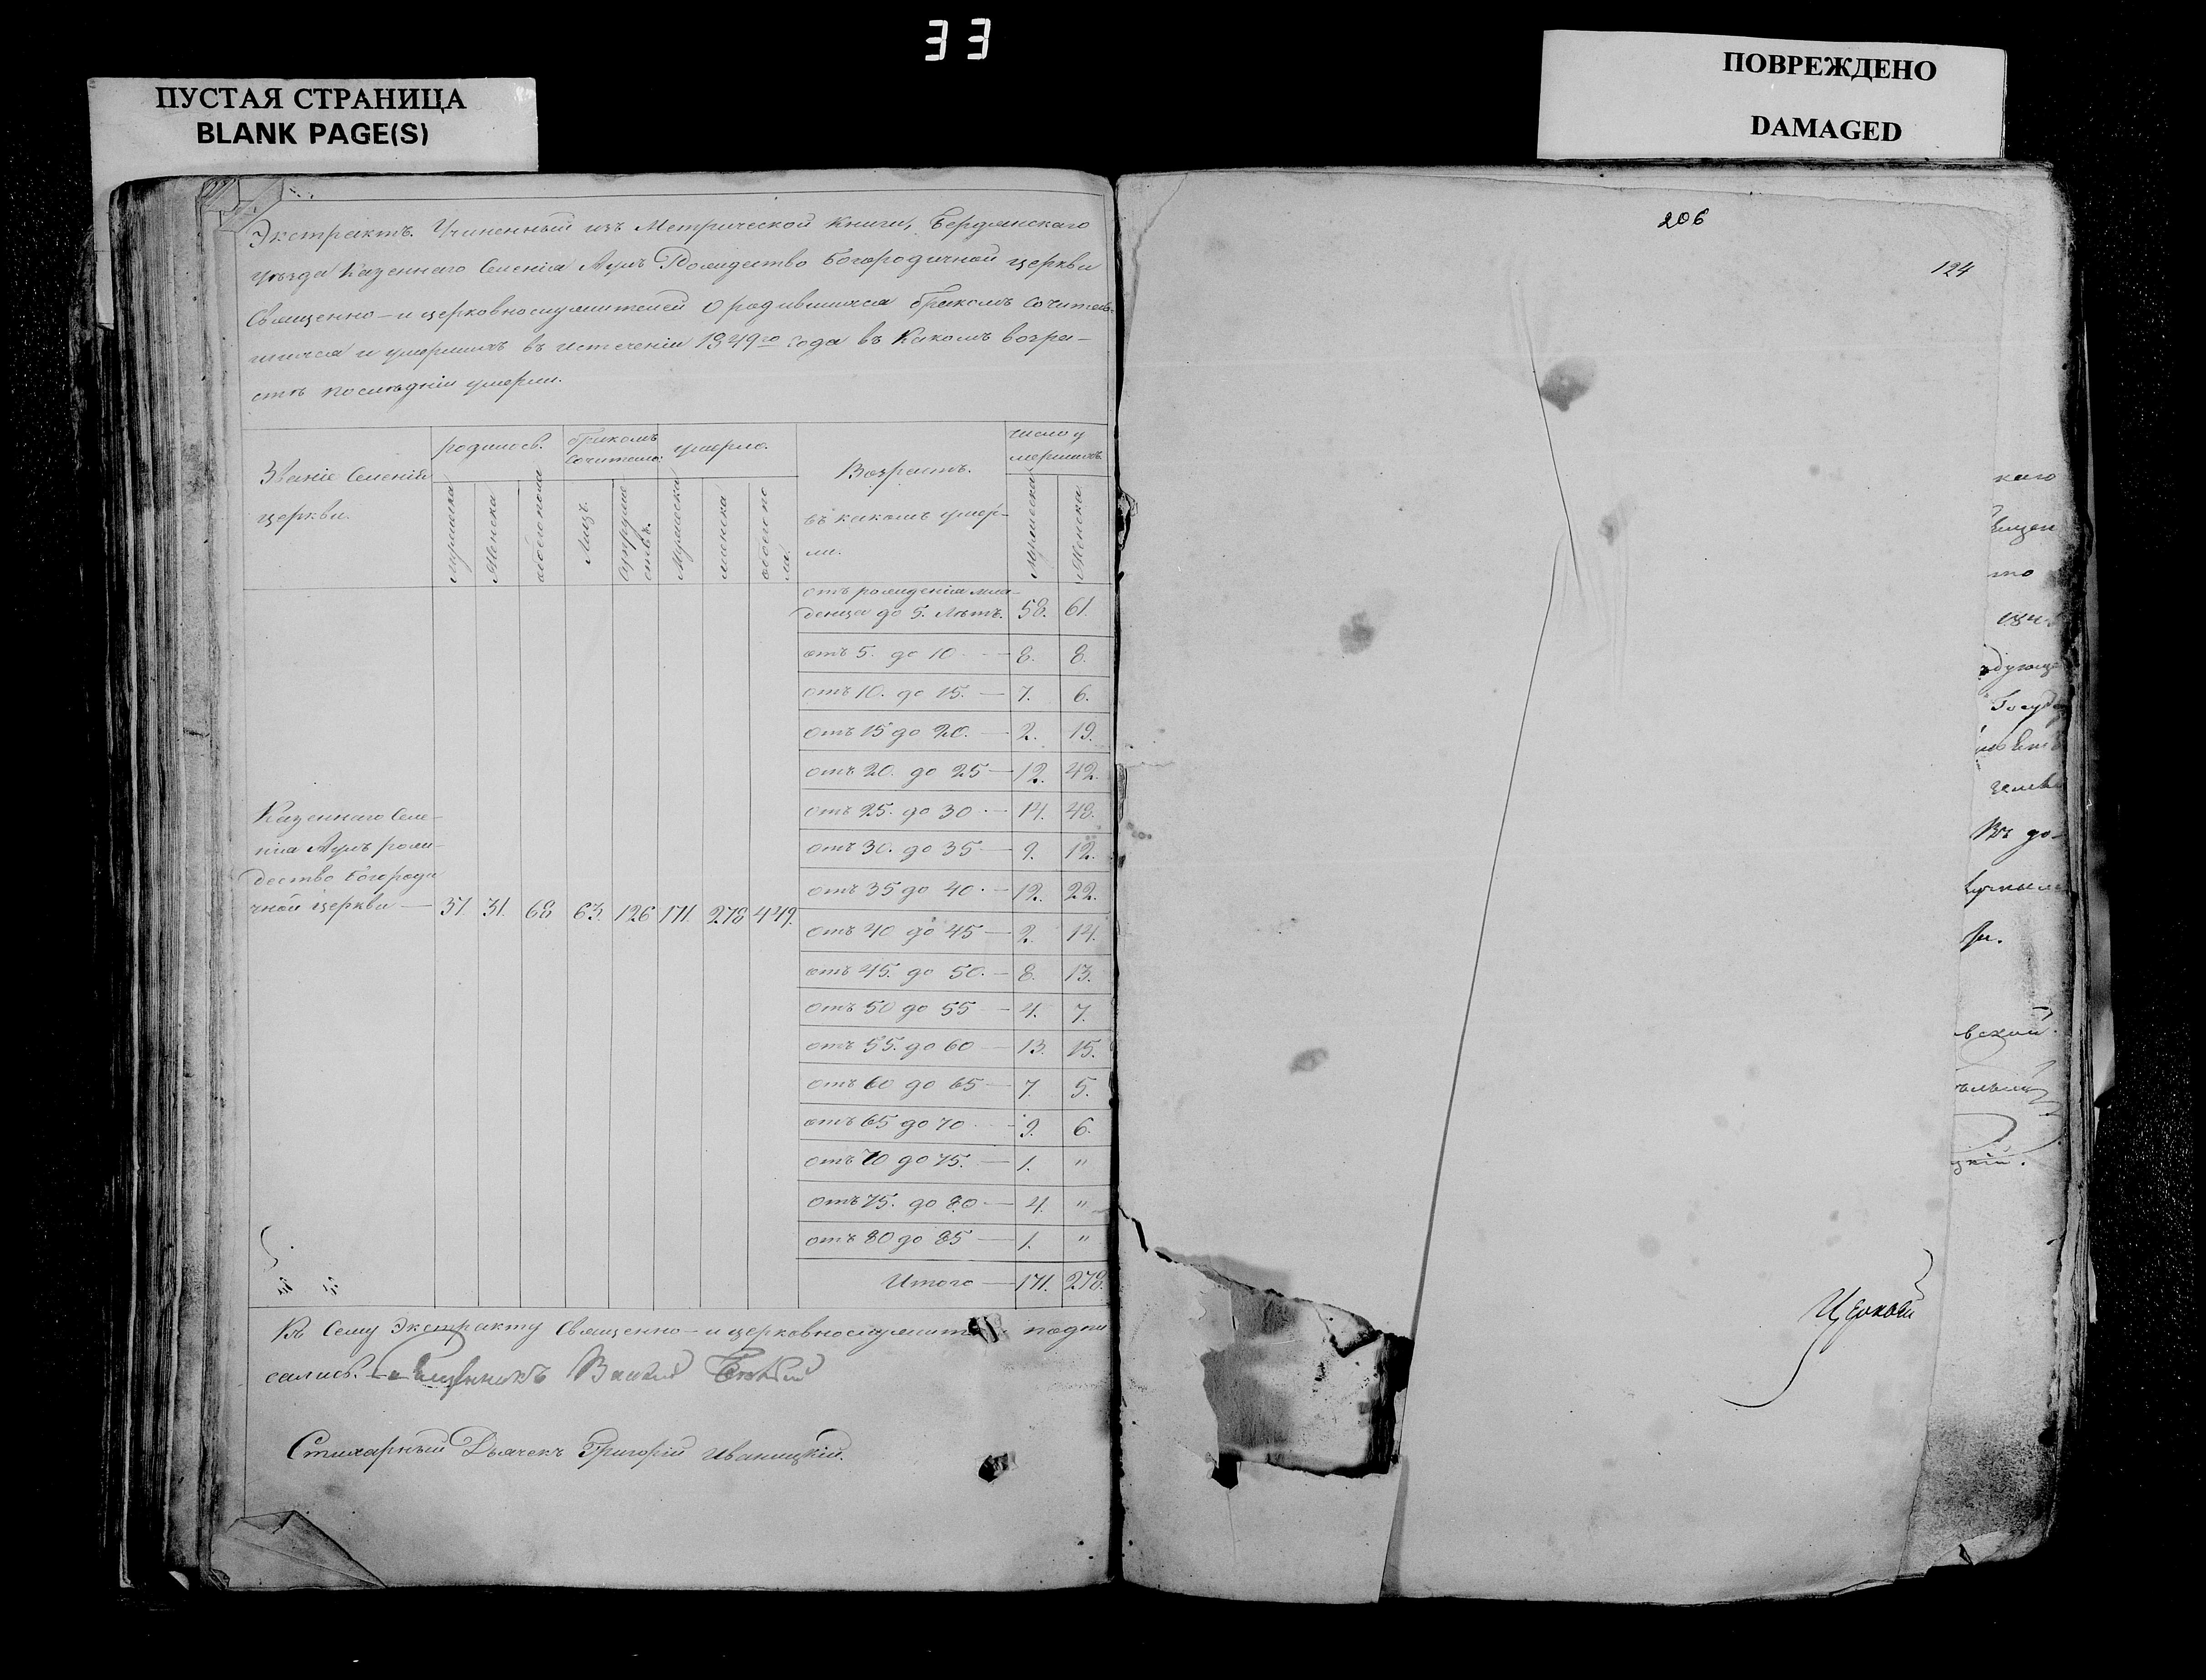 33
ПУСТАЯ СТРАНИЦА
BLANK PAGE(S)
ПОВРЕЖДЕНО
DAMAGED
Экстрактъ. Учиненный изъ Метрической Книги, Бердянскаго
уѣзда Казеннаго Селенія Ауль Рождество Богородичной церкви
Священно-и церковнослужителей о родившихся бракомъ сочетав-
шихся и умершихъ въ истеченіи 1849го года въ какомъ возра-
стѣ послѣдніи умерли.
Званіе Селенія церкви.
родилось.
бракомъ сочетано.
умерло.
Возрастъ. въ какомъ умер-
ли.
число у
мершихъ.
Мужеска
Женска
обоего пола
Лицъ
супруже
ствъ.
Мужеска
женска
обоего по
ла.
Мужеска
Женска
отъ рожденія мла-
денца до 5. лѣтъ. 58. 61.
отъ 5. до 10 — 8. 8.
отъ 10. до 15. — 7. 6.
отъ 15 до 20. — 2. 19.
отъ 20. до 25 — 12. 42.
отъ 25. до 30. — 14. 48.
отъ 30. до 35 — 9. 12.
отъ 35 до 40. — 12. 22.
отъ 40 до 45 — 2. 14.
отъ 45. до 50. — 8. 13.
отъ 50 до 55 — 4. 7.
отъ 55. до 60 — 13. 15.
отъ 60 до 65 — 7. 5.
отъ 65 до 70 — 9. 6.
отъ 70 до 75. — 1. "
отъ 75. до 80 — 4. "
отъ 80 до 85 — 1. "
Итого — 171. 278.
Казеннаго Селе-
нія Ауль рож-
дество Богороди
чной церкви — 37. 31. 68 63. 126 171. 278 449.
Къ сему Экстракту Священно-и церковнослужит подпи
сались. Священникъ
Стихарный Дьячекъ Григорій Иваницкій.
206
124
каго
то
Госуд
Въ до-
вской.
цкій.